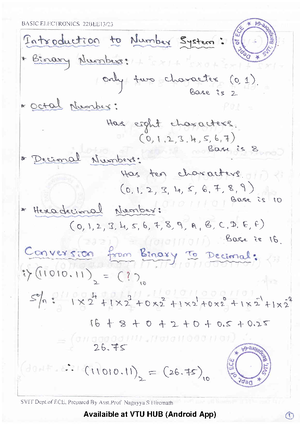 BASIC ELECTRONICS 22BEE13/23
Introduction to Number System:
* Binary Numbers:
only two character (0,1).
Base is 2
* Octal Number:
Has eight characters,
(0,1,2,3,4,5,6,7)
Base is 8
* Decimal Numbers:
Has ten characters
(0,1,2,3,4,5,6,7,8,9)
Base is 10
* Hexadecimal Number:
(0,1,2,3,4,5,6,7,8,9,A,B,C,D,E,F)
Base is 16.
Conversion from Binary To Decimal:
(11010.11)₂ = (?)₁₀
Sol^n: 1×2⁴+1×2³+0×2²+1×2¹+0×2⁰+1×2⁻¹+1×2⁻²
16 + 8 + 0 + 2 + 0 + 0.5 + 0.25
26.75
∴ (11010.11)₂ = (26.75)₁₀
SVIT Dept of ECE, Prepared By Asst.Prof. Nagayya S Hiremath
1
Available at VTU HUB (Android App)